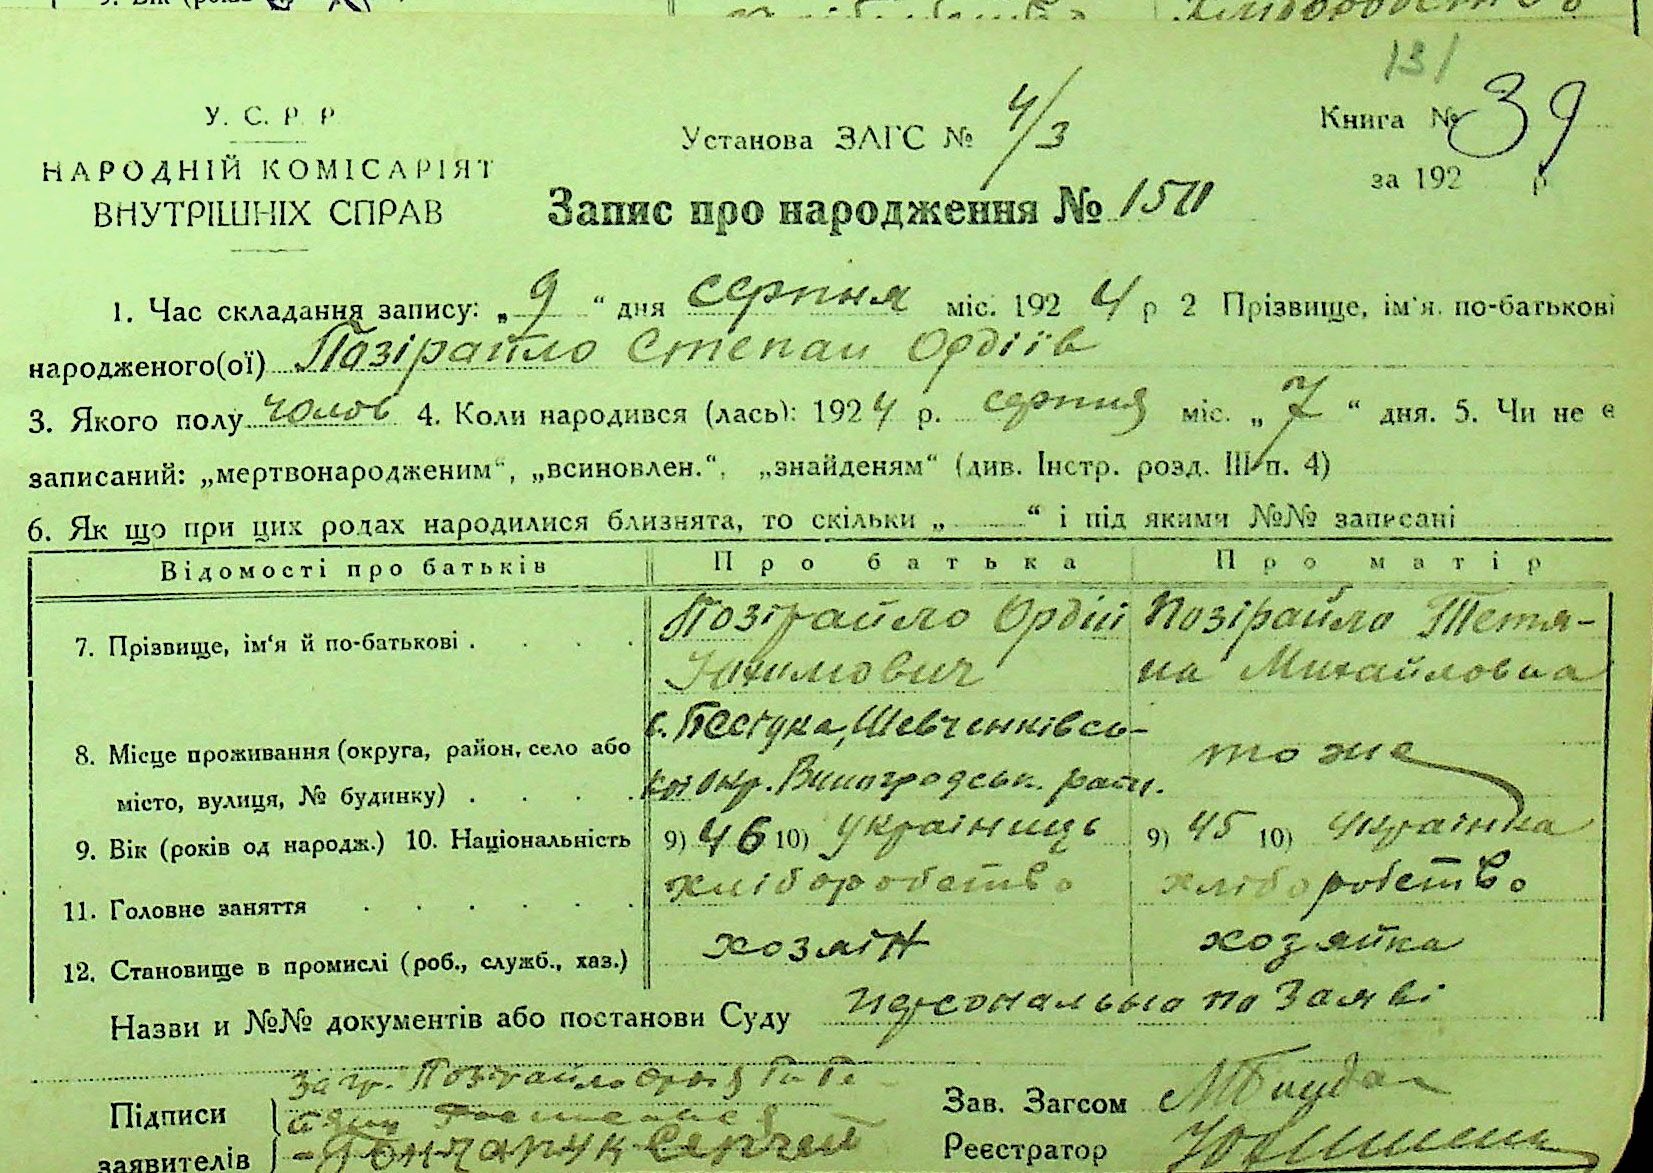 131
У. С. Р. Р
НАРОДНІЙ КОМІСАРІЯТ
ВНУТРІШНІХ СПРАВ
Установа ЗАГС № 4/3
Книга № 39
за 192 р
Запис про народження № 150
1. Час складання запису: „ 9 “ дня серпня міс. 192 4 р 2 Прізвище, ім'я, по-батькові
народженого(ої) Позірайло Степан Ордіїв
3. Якого полу чолов 4. Коли народився (лась): 192 4 р. серпня міс. „ 7 “ дня. 5. Чи не є
записаний: „мертвонародженим“, „всиновлен.“, „знайденям“ (див. Інстр. розд. III п. 4)
6. Як що при цих родах народилися близнята, то скільки „ “ і під якими №№ записані
Відомості про батьків Про батька Про матір
7. Прізвище, ім'я й по-батькові . . . . Позірайло Ордій Позірайло Тетя-
на Михайловна
8. Місце проживання (округа, район, село або с. Шевченківсь-
то же
місто, вулиця, № будинку) . . . . кої окр. райн.
9. Вік (років од народж.) 10. Національність 9) 46 10) україниць 9) 45 10) українка
11. Головне заняття . . . . . . хліборобство хліборобство
12. Становище в промислі (роб., служб., хаз.) хозяін хозяйка
Назви и №№ документів або постанови Суду персональна по заяві
Підписи За гр. Позірайло
заявителів Гончарук Сергей
Зав. Загсом
Реєстратор